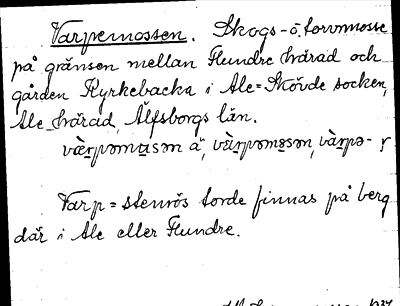 Varpemossen. Skogs- o. torvmosse
på gränsen mellan Flundre härad och
gården Kyrkebacka i Ale-Skövde socken,
Ale härad, Älfsborgs län.
Varp = stenrös torde finnas på berg
där i Ale eller Flundre.